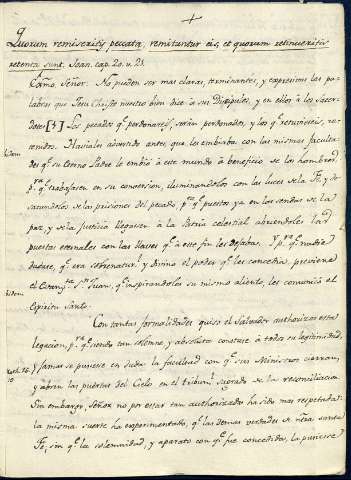 +
Quorum remiseritis peccata, remitantur eis, et quorum retinueritis
retenta sunt. Joan. cap. 20. v. 23.
Exmo. Señor. No pueden ser mas claras, terminantes, y expresivas las pa-
labras que Jesu Christo nuestro bien dice a sus Discipulos, y en ellos à los Sacer-
dotes [§] Los pecados q.e perdonareis, serán perdonados, y los q.e retuviereis, re-
tenidos. Haviales advertido antes, que les embiaba con las mismas faculta-
Ibidem
des q.e su Eterno Padre le embió à este mundo à beneficio de los hombres,
p.a q.e trabajasen en su conversion, iluminandolos con las luces de la Fe, y de-
satandolos de las prisiones del pecado, p.a q.e puestos ya en las sendas de la
paz, y de la justicia llegasen à la Patria celestial abriendoles las
puertas eternales con las llaves q.e à este fin les dejaba. Y p.a q.e nadie
dudase, q.e era sobrenatur.l y divino el poder q.e les concedia, previene
el Evang.ta S.n Juan, q.e inspirandolos su mismo aliento, les comunicó el
Ibidem
Espiritu Santo.
Con tantas formalidades quiso el Salvador authorizar esta
legacion, p.a q.e siendo tan solemne, y absoluta constase à todos su legitimidad,
y jamas se pusiese en duda la facultad con q.e sus Ministros cierran,
y abren las puertas del Cielo en el tribun.l sagrado de la reconciliacion.
Sin embargo, Señor, no por estar tan authorizada ha sido mas respetada:
la misma suerte ha experimentado, q.e las demas verdades de nr̃a santa
Fe, sin q.e la solemnidad, y aparato con q.e fue concedida, la pusiese